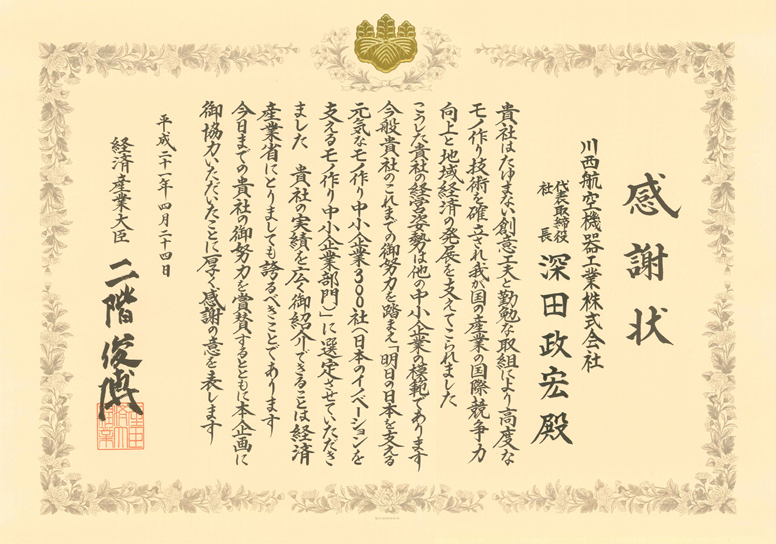 感謝状
川西航空機器工業株式会社
代表取締役
社長
深田政宏殿
貴社はたゆまない創意工夫と勤勉な取組により高度な
モノ作り技術を確立され我が国の産業の国際競争力
向上と地域経済の発展を支えてこられました
こうした貴社の経営姿勢は他の中小企業の模範であります
今般貴社のこれまでの御努力を踏まえ「明日の日本を支える
元気なモノ作り中小企業300社(日本のイノベーションを
支えるモノ作り中小企業部門)」に選定させていただき
ました 貴社の実績を広く御紹介できることは経済
産業省にとりましても誇るべきことであります
今日までの貴社の御努力を賞賛するとともに本企画に
御協力いただいたことに厚く感謝の意を表します
平成二十一年四月二十四日
経済産業大臣
二階俊博